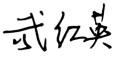 武红英